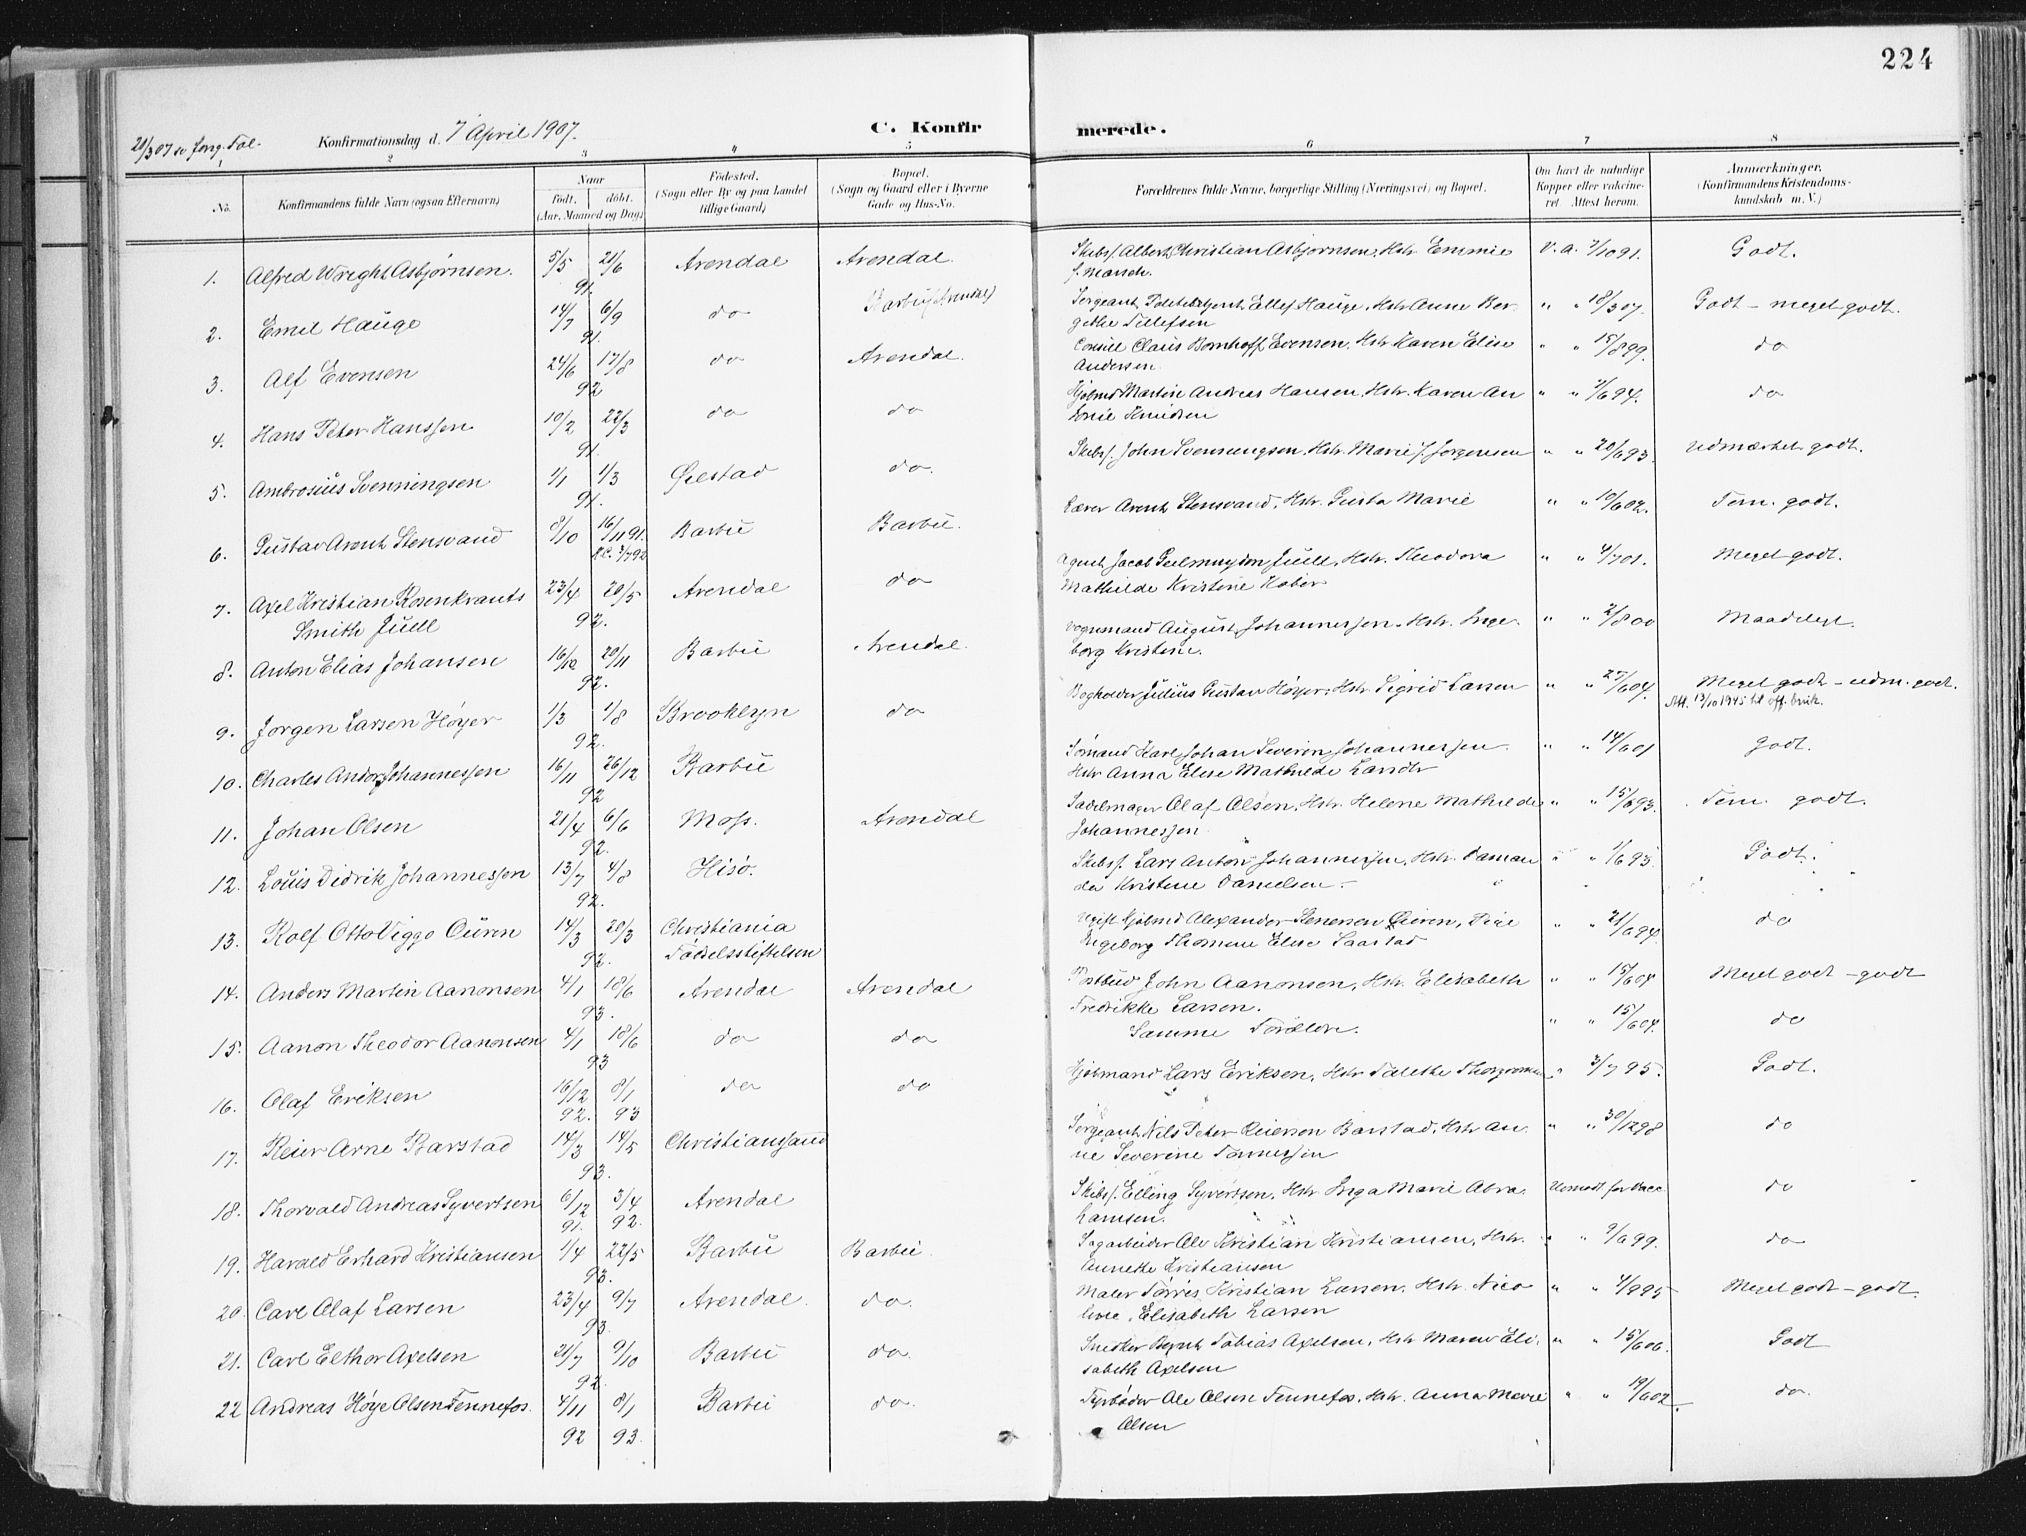 224
21/3 07
Konfirmationsdag d. 7 April 1907.
C. Konfirmerede.
1 2 3 4 5 6 7 8
No. Konfirmandens fulde Navn (ogsaa Efternavn) Naar født. døbt. (Aar, Maaned og Dag) Fødested. (Sogn eller By og paa Landet tillige Gaard) Bopæl. (Sogn og Gaard eller i Byerne Gade og Hus-No. Forældrenes fulde Navne, borgerlige Stilling (Næringsvei) og Bopæl. Om havt de naturlige Kopper eller vakcineret Attest herom. Anmærkninger. (Konfirmandens Kristendomskundskab m. V.)
1. Alfred Wright Asbjørnsen. 5/5 21/6 91. Arendal Arendal. Skibsf. Albert Christian Asbjørnsen, Hstr Emmie f. Marsch. V. a. 7/10 91. Godt.
2. Emil Hauge 14/7 6/9 91. do Barbu (Arendal) Sergeant, Politibetjent Ellef Hauge, Hstr Anne Bergithe Tellefsen " " 18/3 07. Godt - meget godt.
3. Alf Evensen 24/6 17/8 92 do Arendal. Consul Claus Bomhoff Evensen, Hstr Karen Elise Andersen. " " 15/8 99. do
4. Hans Peter Hanssen 10/2 22/3 91. do do Hjölmd Martin Andreas Hansen, Hstr. Karen Antonie Knudsen " " 7/6 94. do
5. Ambrosius Svenningsen 1/1 1/3 91. Øiestad do. Skibsf. John Svenningsen, Hstr. Marie f. Jørgensen " " 20/6 93. Udmærket godt.
6. Gustav Arent Stensvand 8/10 16/11 91. Barbu Barbu. Lærer Arent Stensvand, Hstr. Gusta Marie " " 10/6 02. Tem. godt.
7. Axel Kristian Rosenkrants Smith Juell 23/4 20/5 92. Arendal do Agent Jacob Geelmuyden Juell, Hstr. Theodora Mathilde Kristine Høber " " 4/7 01. Meget godt.
8. Anton Elias Johansen 16/10 20/11 92. Barbu Arendal. Vognmand August Johannessen, Hstr. Ingeborg Kristine. " " 2/8 00 Maadeligt.
9. Jørgen Larsen Høyer 1/3 1/8 92. Brooklyn do Bogholder Julius Gustav Høyer, Hstr. Sigrid Larsen " " 27/6 04. Meget godt - udm. godt.
Att. 13/10 1945 til off. bruk.
10. Charles Andor Johannessen 16/11 26/12 92 Barbu Sömand Karl Johan Severin Johannessen. Hstr Anna Elise Mathilde Larsdtr " " 14/6 01 Godt.
11. Johan Olsen 21/4 6/6 92. Moss. Arendal Sadelmager Olaf Olsen, Hstr. Helene Mathilde Johannessen " " 15/6 93. Tem. godt.
12. Louis Didrik Johannessen 13/7 4/8 92. Hisö. Skibsf. Lars Anton Johannessen, Hstr. Damanda Kristine Danielsen. " " 1/6 93. Godt.
13. Rolf Otto Viggo Ouren 14/3 20/3 92. Christiania Fødselsstiftelsen Ugift Hjölmd Alexander Stenersen Ouren, Pige Ingeborg Thomine Elise Saastad " " 21/6 94. do
14. Anders Martin Aanonsen 4/1 18/6 93. Arendal Arendal Postbud John Aanonsen, Hstr. Elisabeth Fredrikke Larsen. " " 15/6 04 Meget godt - godt
15. Aanon Theodor Aanonsen 4/1 18/6 93 do do Samme Forældre. " " 15/6 04. do
16. Olaf Eriksen 16/12 92. 8/1 93 do do Hjölmand Lars Eriksen, Hstr Talethe " 3/7 95. Godt.
17. Reier Arne Barstad 14/3 14/5 93. Christianssand Sergeant Nils Peter Reiersen Barstad, Hstr Anne Severine Tønnessen " " 30/12 98 do
18. Thorvald Andreas Syvertsen 6/12 91. 3/4 92. Arendal Skibsf. Elling Syvertsen, Hstr Inga Marie Abrahamsen. Uimodt. for Vacc. do
19. Harald Erhard Kristiansen 1/4 22/5 93. Barbu Barbu. Sagarbeider Ole Kristian Kristiansen, Hstr. Annette Kristiansen " " 9/6 99. do
20. Carl Olaf Larsen 23/4 9/7 93. Arendal. do. Maler Tørres Kristian Larsen, Hstr. Nicoline Elisabeth Larsen " " 4/9 95 Meget godt - godt.
21. Carl Elthor Axelsen 21/7 9/10 92. Barbu do. Snedker Bernt Tobias Axelsen, Hstr Maren Elisabeth Axelsen " " 15/6 06. Godt
22 Andreas Høye Olsen Tennefos. 4/11 92 8/1 93. Barbu do. Fyrbøder Ole Olsen Tennefos, Hstr. Anna Marie Olsen " " 19/6 02. do.